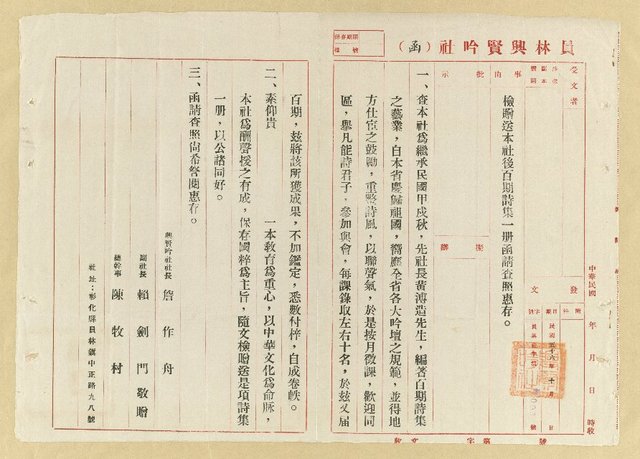 員林興賢吟社（函）
受文者
事由
批示
擬辦
發文
檢贈送本社後百期詩集一册函請查照惠存。
中華民國　年　月　日　時收
一、查本社爲繼承民國甲戌秋，先社長黃溥造先生，編著百期詩集
之藝業，自本省慶歸祖國，嚮應全省各大吟壇之規範，並得地
方仕宦之鼓勵，重整詩風，以聯聲氣，於是按月徵課，歡迎同
區，擧凡能詩君子，參加與會，每課錄取左右十名，於茲又屆
百期，茲將該所獲成果，不加鑑定，悉數付梓，自成卷帙。
二、素仰貴　　　一本敎育爲重心，以中華文化爲命脈，
本社爲酬聲援之有成，保存國粹爲主旨，隨文檢贈送是項詩集
一册，以公諸同好。
三、函請查照尚希答閱惠存。
興賢吟社社長　詹作舟
副社長　賴劍門敬贈
總幹事　陳牧村
社址：彰化縣員林鎭中正路九八號
收文　字第　號